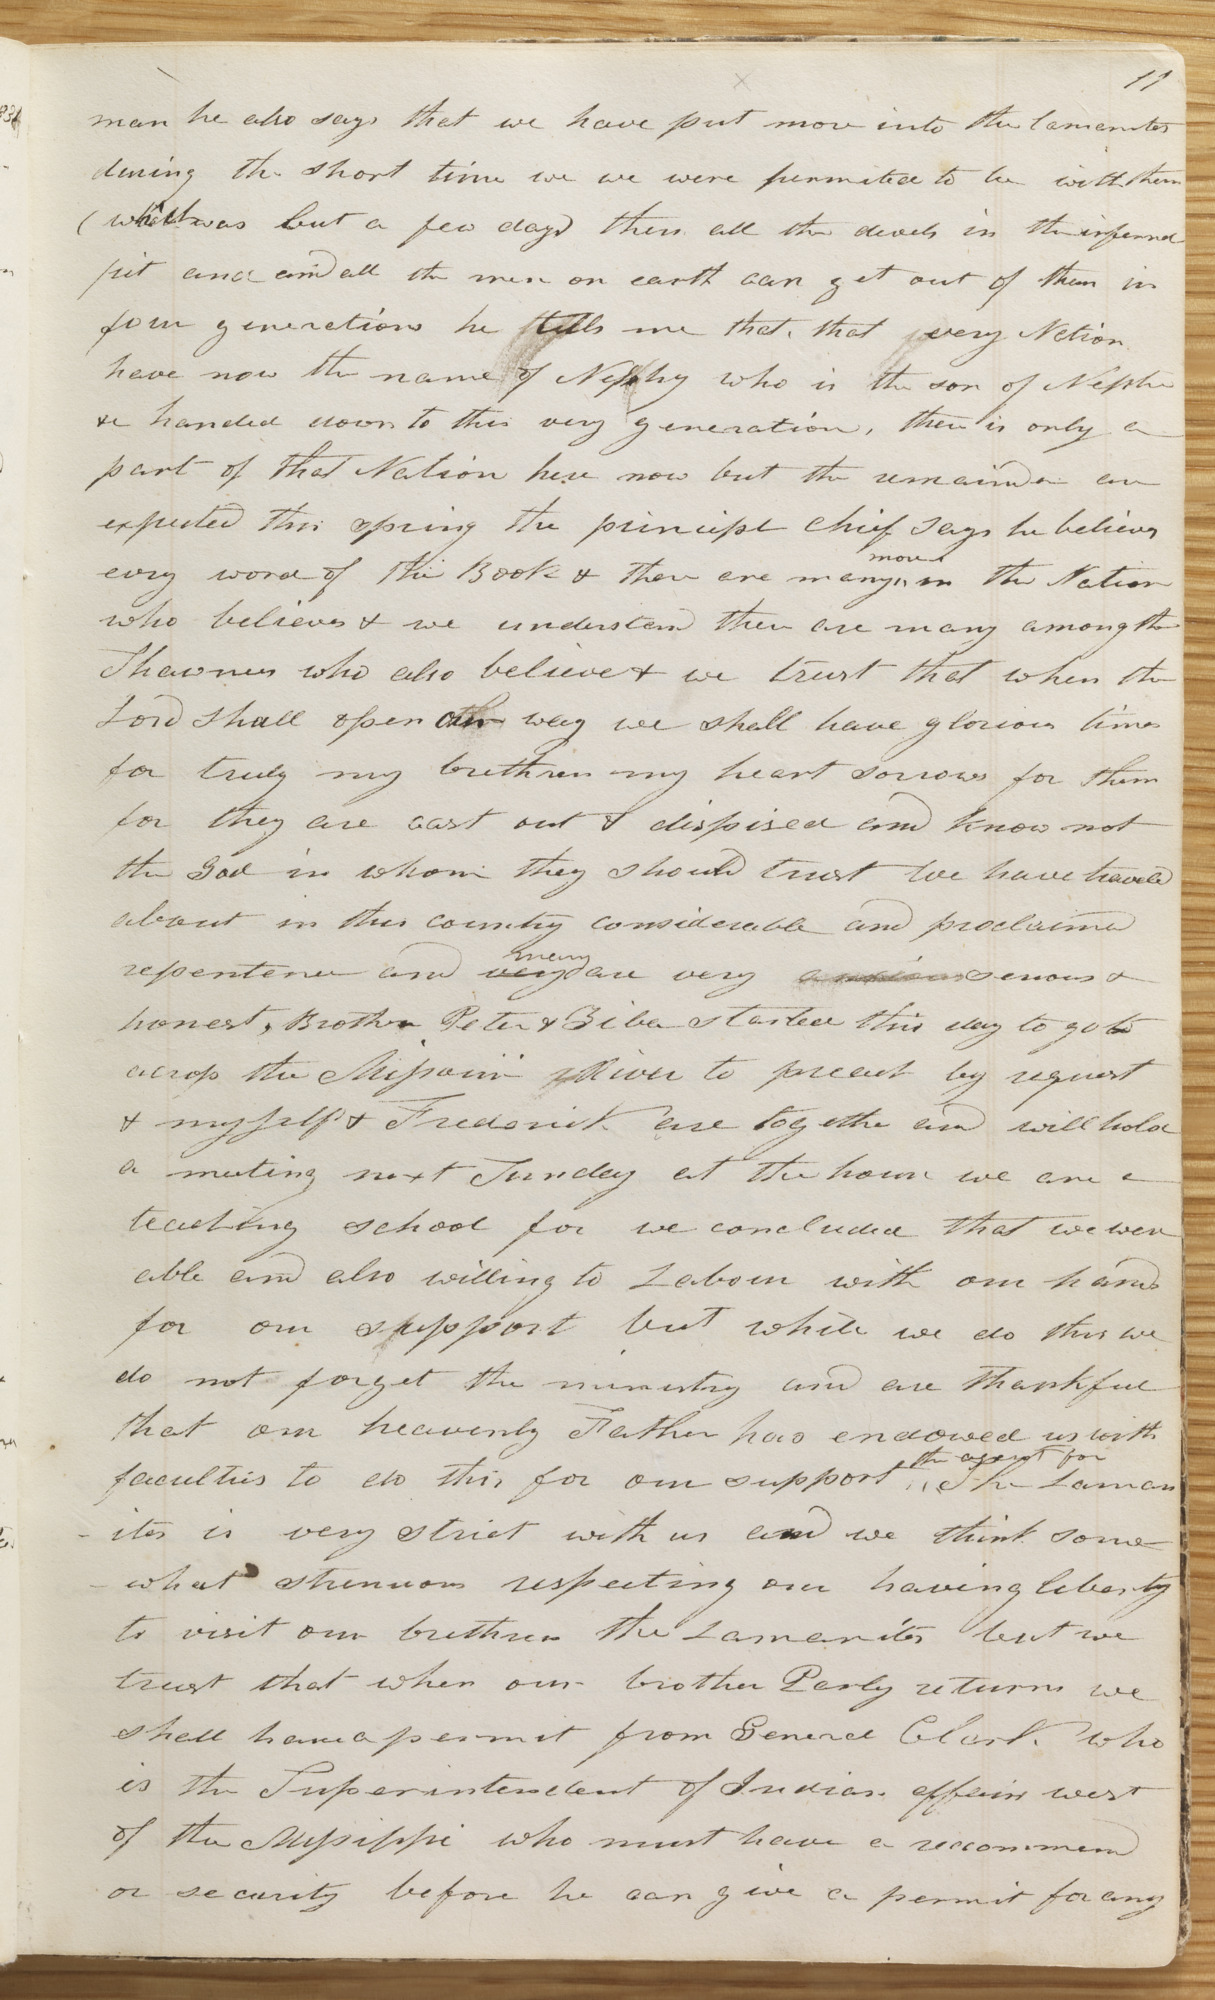 11
man he also says that we have put more into the lamanites
during the short time we we were permited to be with them
(which was but a few days) then all the devels in the infernal
pit and and all the men on earth can get out of them in
four generations he tells me that, that very Nation
have now the name of Nephy who is the son of Nephi
& handed down to this very generation, there is only a
part of that Nation here now but the remainder are
expected this spring the principl chief says he believes
evry word of the Book & there are many more in the Nation
who believes & we understand there are many among the
Shawnees who also believe & we trust that when the
Lord shall open our way we shall have glorious times
for truly my brethren my heart sorrows for them
for they are cast out & dispised and know not
the God in whom they should trust We have traveled
about in this country considerable and proclaimed
repentence and many are very serious &
honest, Brother Peter & Ziba started this day to go to
across the Missouri River to preach by request
& myself & Frederick are together and will hold
a meeting next Sunday at the house we are a
teaching school for we concluded that we were
able and also willing to Labour with our hands
for our support but while we do this we
do not forget the ministry and are thankful
that our heavenly Father has endowed us with
faculties to do this for our support, the agent for The Laman
-ites is very strict with us and we think some
-what strenuous respecting our having liberty
to visit our brethren the Lamanites but we
trust that when our brother Parly returns we
shall have a permit from General Clark who
is the Superintendent of Indian affairs west
of the Missippi who must have a recommend
or security before he can give a permit for any